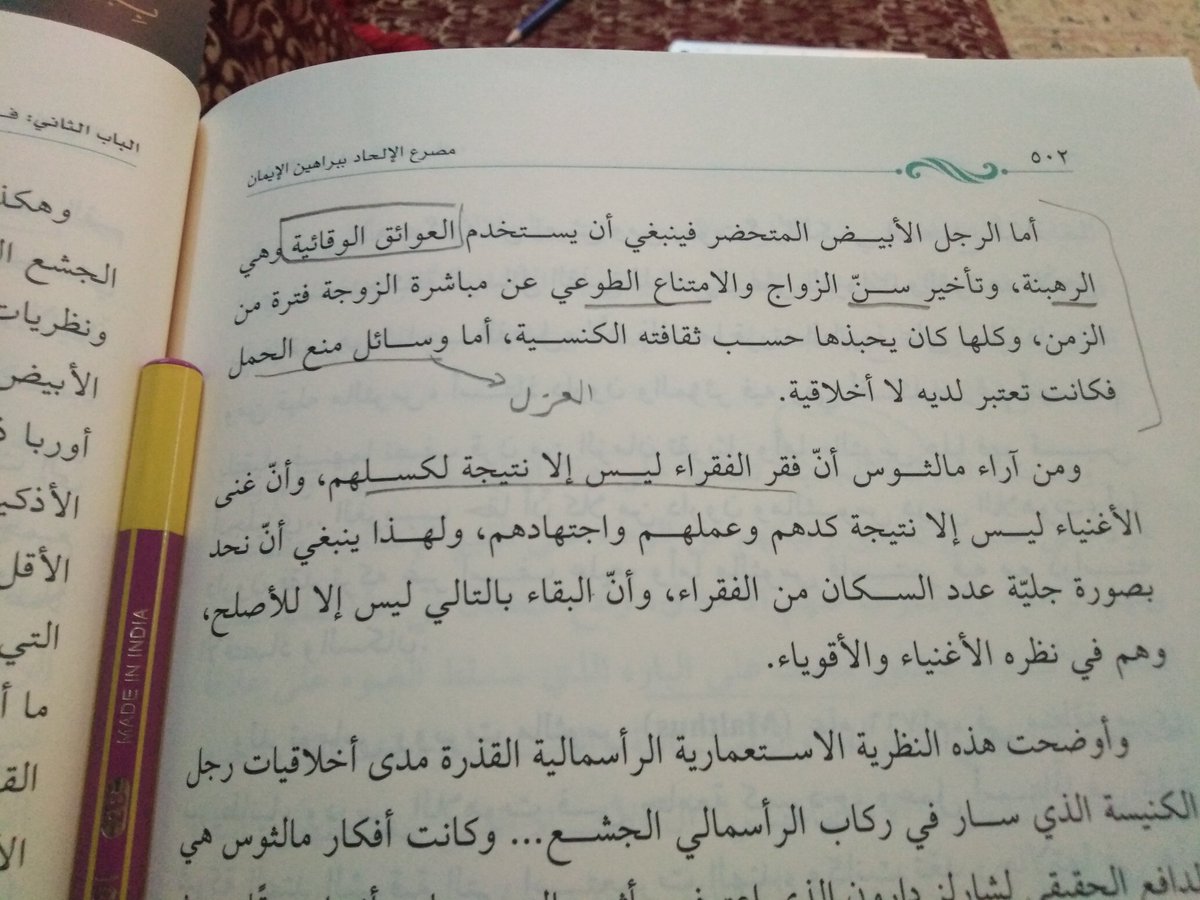 الباب الثاني:
وهكذ
الجشع
ونظريات
الأبيض
أوربا
الأذكي
الأقل
التي
ما أ
الق
MADE IN INDIA
٥٠٢
مصرع الإلحاد ببراهين الإيمان
أما الرجل الأبيض المتحضر فينبغي أن يستخدم العوائق الوقائية وهي
الرهبنة، وتأخير سنّ الزواج والامتناع الطوعي عن مباشرة الزوجة فترة من
الزمن، وكلها كان يحبذها حسب ثقافته الكنسية، أما وسائل منع الحمل
فكانت تعتبر لديه لا أخلاقية.
العزل
ومن آراء مالثوس أنّ فقر الفقراء ليس إلا نتيجة لكسلهم، وأنّ غنى
الأغنياء ليس إلا نتيجة كدهم وعملهم واجتهادهم، ولهذا ينبغي أنّ نحد
بصورة جليّة عدد السكان من الفقراء، وأنّ البقاء بالتالي ليس إلا للأصلح،
وهم في نظره الأغنياء والأقوياء.
وأوضحت هذه النظرية الاستعمارية الرأسمالية القذرة مدى أخلاقيات رجل
الكنيسة الذي سار في ركاب الرأسمالي الجشع... وكانت أفكار مالثوس هي
لدافع الحقيقي لشارلز دارون الذي